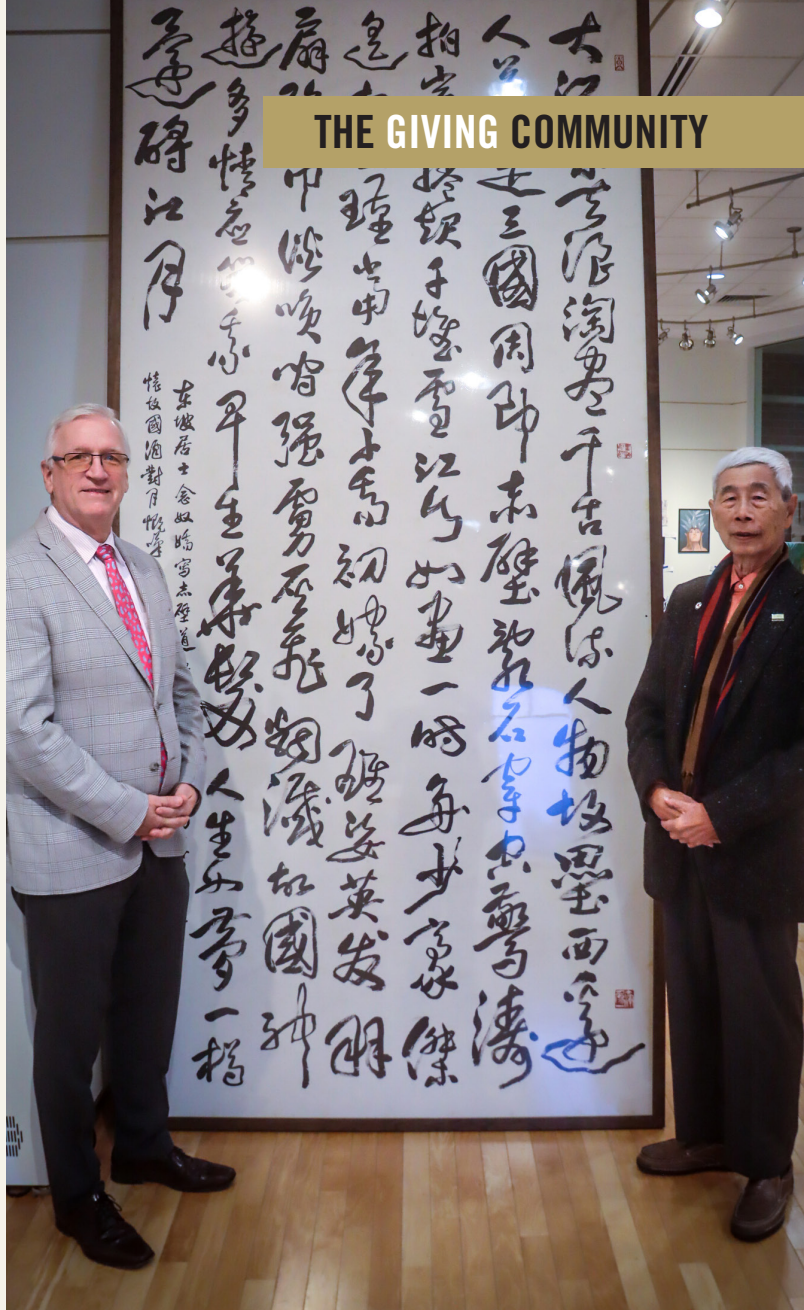 THE GIVING COMMUNITY
大江去浪淘盡千古風流人物故壘西邊
人是三國周郎赤壁亂石穿空驚濤
拍岸捲起千堆雪江山如畫一時多少豪傑
遥瑾當年小喬初嫁了雄姿英发羽
扇巾談笑間强虜灰飛烟滅故國神
遊多情應笑我早生華髮人生如夢一樽
還酹江月
东坡居士念奴嬌寫赤壁道
懷故國酒對月慨